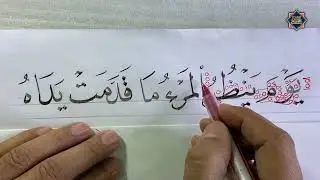 يَوْمَ يَنْظُرُ الْمَرْءُ مَا قَدَّمَتْ يَدَاهُ